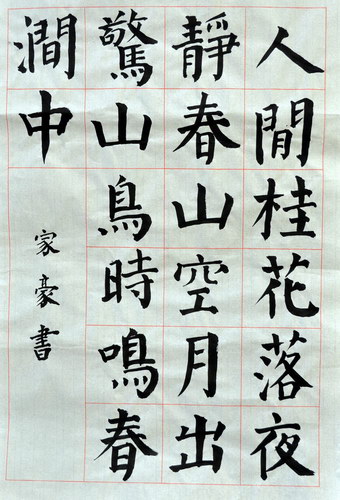 人閒桂花落夜
靜春山空月出
驚山鳥時鳴春
澗中
家豪書